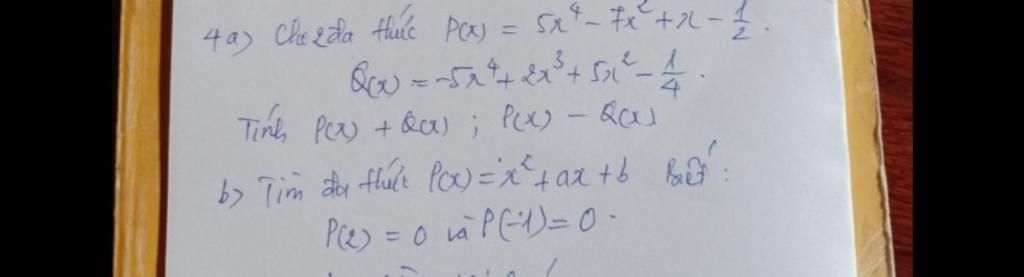 4a) Cho 2 đa thức P(x) = 5x⁴ - 7x² + x - 1/2.
Q(x) = -5x⁴ + 2x³ + 5x² - 1/4.
Tính P(x) + Q(x) ; P(x) - Q(x)
b) Tìm đa thức P(x) = x² + ax + b Biết :
P(2) = 0 và P(-1) = 0.